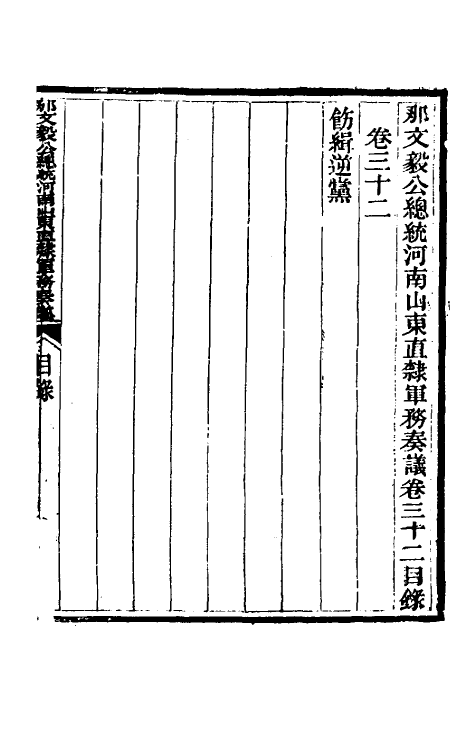 那文毅公總統河南山東直隸軍務奏議卷三十二目錄
卷三十二
飭緝逆黨
那文毅公總統河南山東直隸軍務奏議
目錄